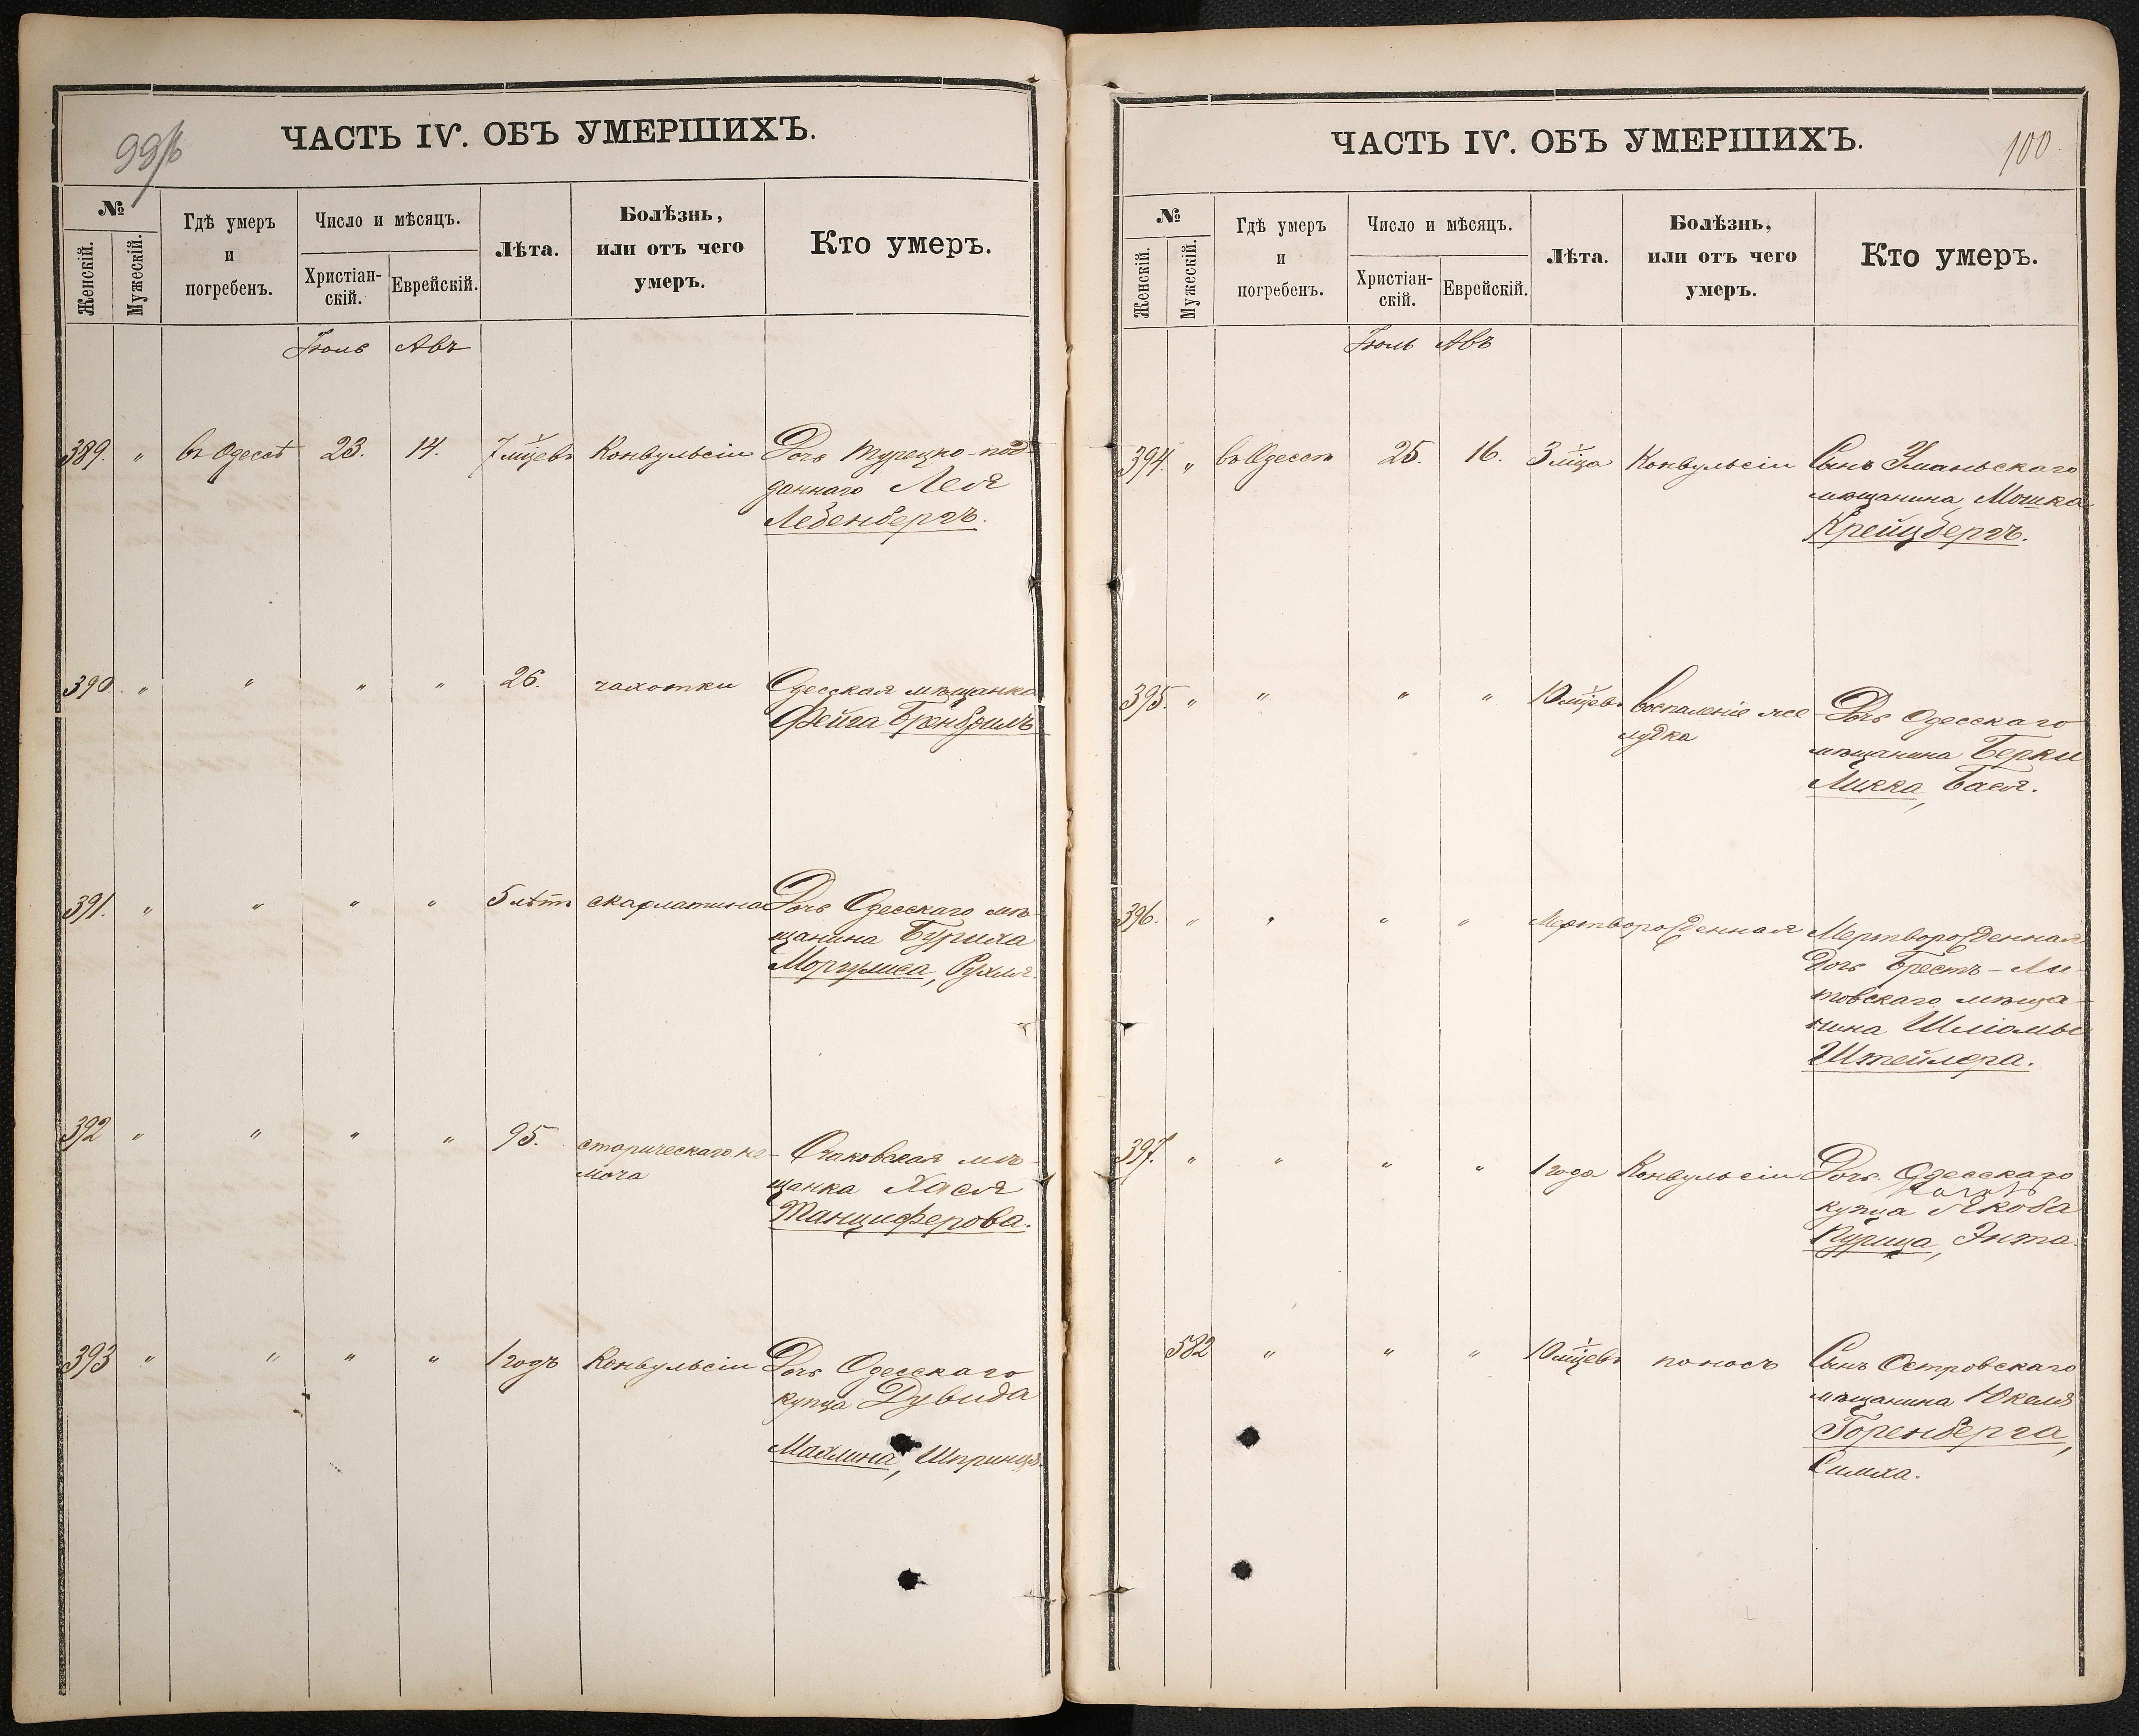 99/б
ЧАСТЬ IV. ОБЪ УМЕРШИХЪ.
№
Женскій.
Мужескій.
Гдѣ умеръ
и
погребенъ.
Число и мѣсяцъ.
Христіан-
скій.
Еврейскій.
Лѣта.
Болѣзнь,
или отъ чего
умеръ.
Кто умеръ.
Іюль Авъ
389. " въ Одессѣ 23. 14. 7 мцевъ Конвульсіи Дочь турецко-под-
даннаго Лея
Лебенбергъ.
390. " " " " 26. чахотки Одесская мѣщанка
Фейга
391. " " " " 5 лѣтъ скарлатина Дочь Одесскаго мѣ-
щанина Буриха
Моргулиса, Рухля.
392 " " " " 95. старческаго не- Очаковская мѣ-
моча щанка Хася
Танциферова.
393 " " " " 1 годъ Конвульсіи Дочь Одесскаго
купца Дувида
Махлина, Шпринця.
ЧАСТЬ IV. ОБЪ УМЕРШИХЪ.
100
№
Женскій.
Мужескій.
Гдѣ умеръ
и
погребенъ.
Число и мѣсяцъ.
Христіан-
скій.
Еврейскій.
Лѣта.
Болѣзнь,
или отъ чего
умеръ.
Кто умеръ.
Іюль Авъ
394. " въ Одессѣ 25. 16. 3 мца Конвульсіи Сынъ Уманьскаго
мѣщанина, Мошка
Крейцбергъ.
395. " " " " 10 мцевъ воспаленіе же- Дочь Одесскаго
лудка мѣщанина Берки
Ликка, Бася.
396. " " " " Мертворожденная Мертворожденная
Дочь Брестъ-Ли-
товскаго мѣща-
нина Шліомы
Штейлера.
397. " " " " 1 года Конвульсіи Дочь Одесскаго
купца Якоба
Пурица, Энта.
582 " " " 10 мцевъ поносъ Сынъ Островскаго
мѣщанина Юкеля
Горенберга,
Симха.